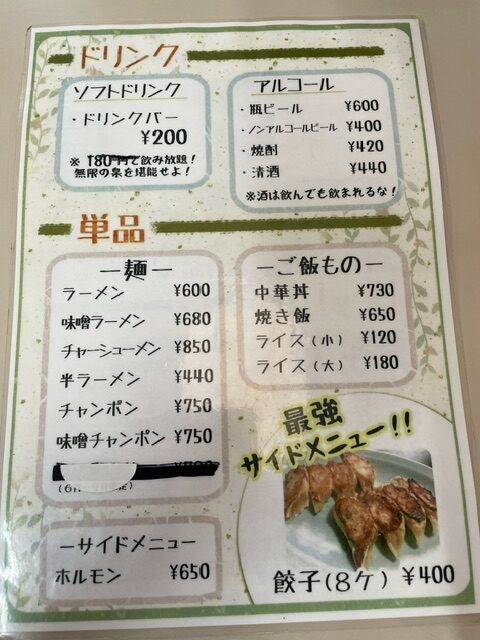 ドリンク
ソフトドリンク
・ドリンクバー
¥200
※ 180円で飲み放題!
無限の泉を堪能せよ!
アルコール
・瓶ビール ¥600
・ノンアルコールビール ¥400
・焼酎 ¥420
・清酒 ¥440
※酒は飲んでも飲まれるな!
単品
ー麺ー
ラーメン ¥600
味噌ラーメン ¥680
チャーシューメン ¥850
半ラーメン ¥440
チャンポン ¥750
味噌チャンポン ¥750
ーご飯ものー
中華丼 ¥730
焼き飯 ¥650
ライス(小) ¥120
ライス(大) ¥180
ーサイドメニュー
ホルモン ¥650
最強
サイドメニュー!!
餃子(8ケ) ¥400